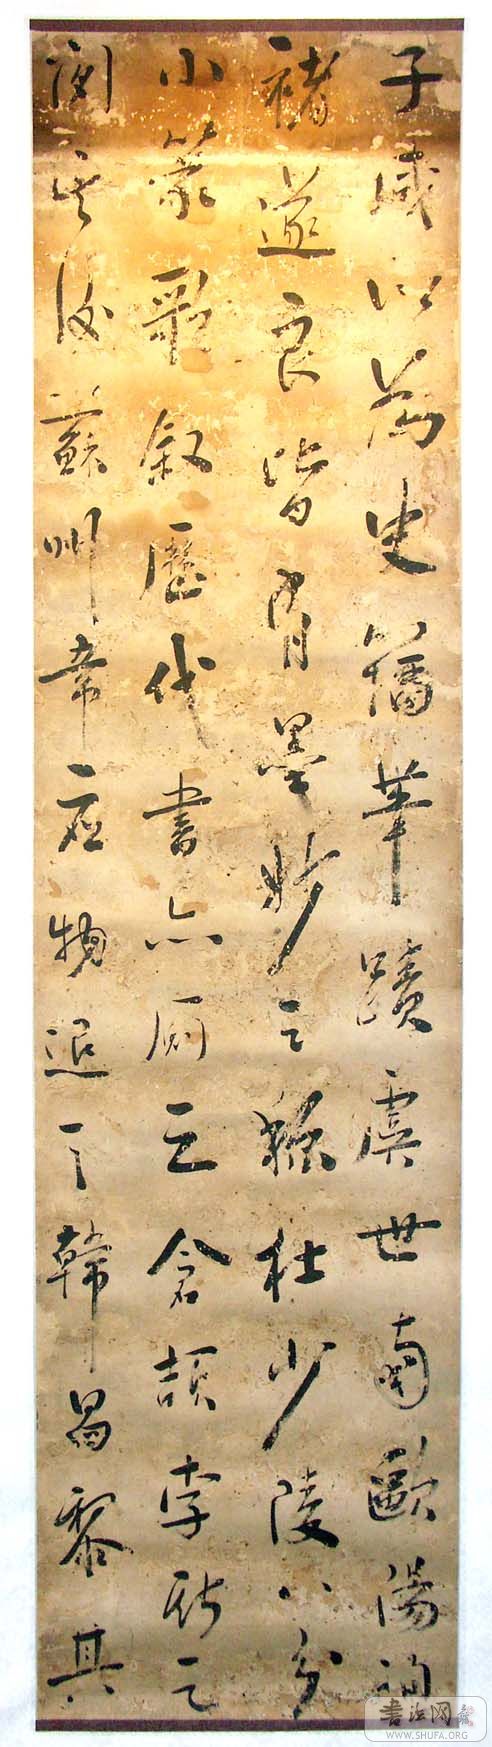 子咸以為史籀筆蹟虞世南歐陽詢
褚遂良皆有墨妙之稱杜少陵八分
小篆歌敘歷代書亦厠之倉頡李斯之
閒其後蘇州韋應物退之韓昌黎其
書法网
WWW.SHUFA.ORG